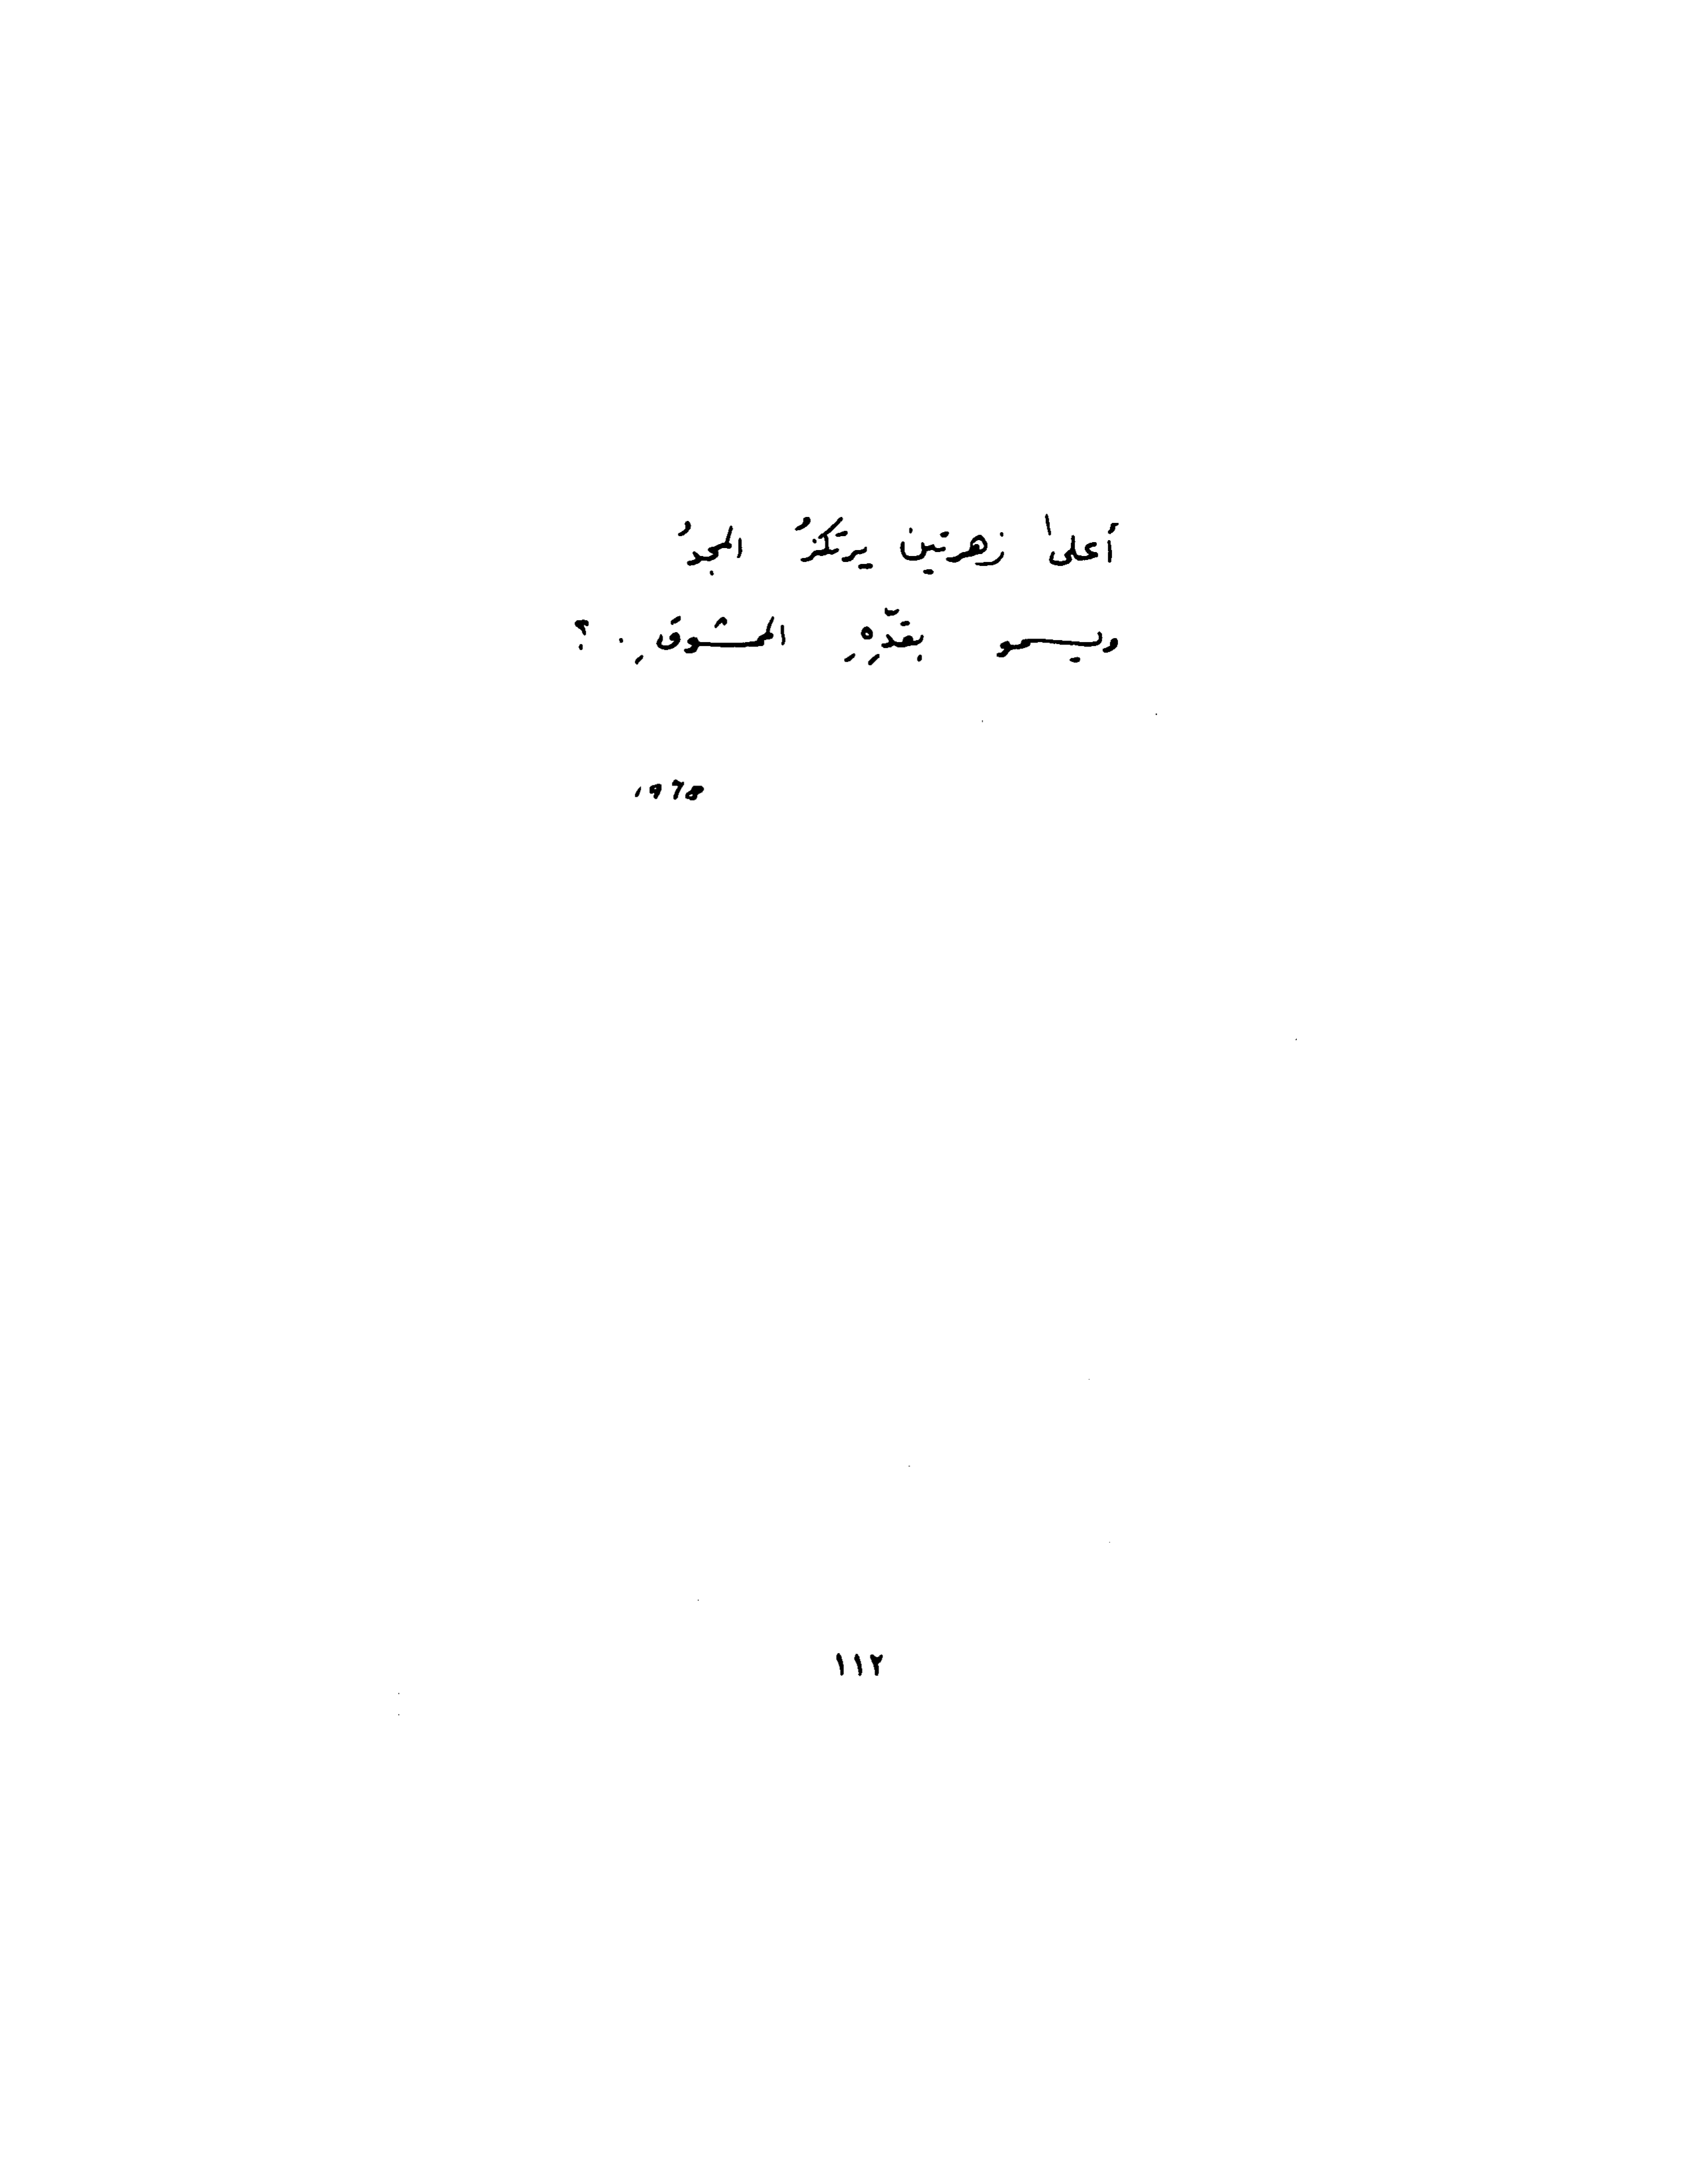 أعلىٰ زهرتين يرتكزُ المجدُ
ويسمو بقدِّهِ الممشوقِ . ؟
١١٢